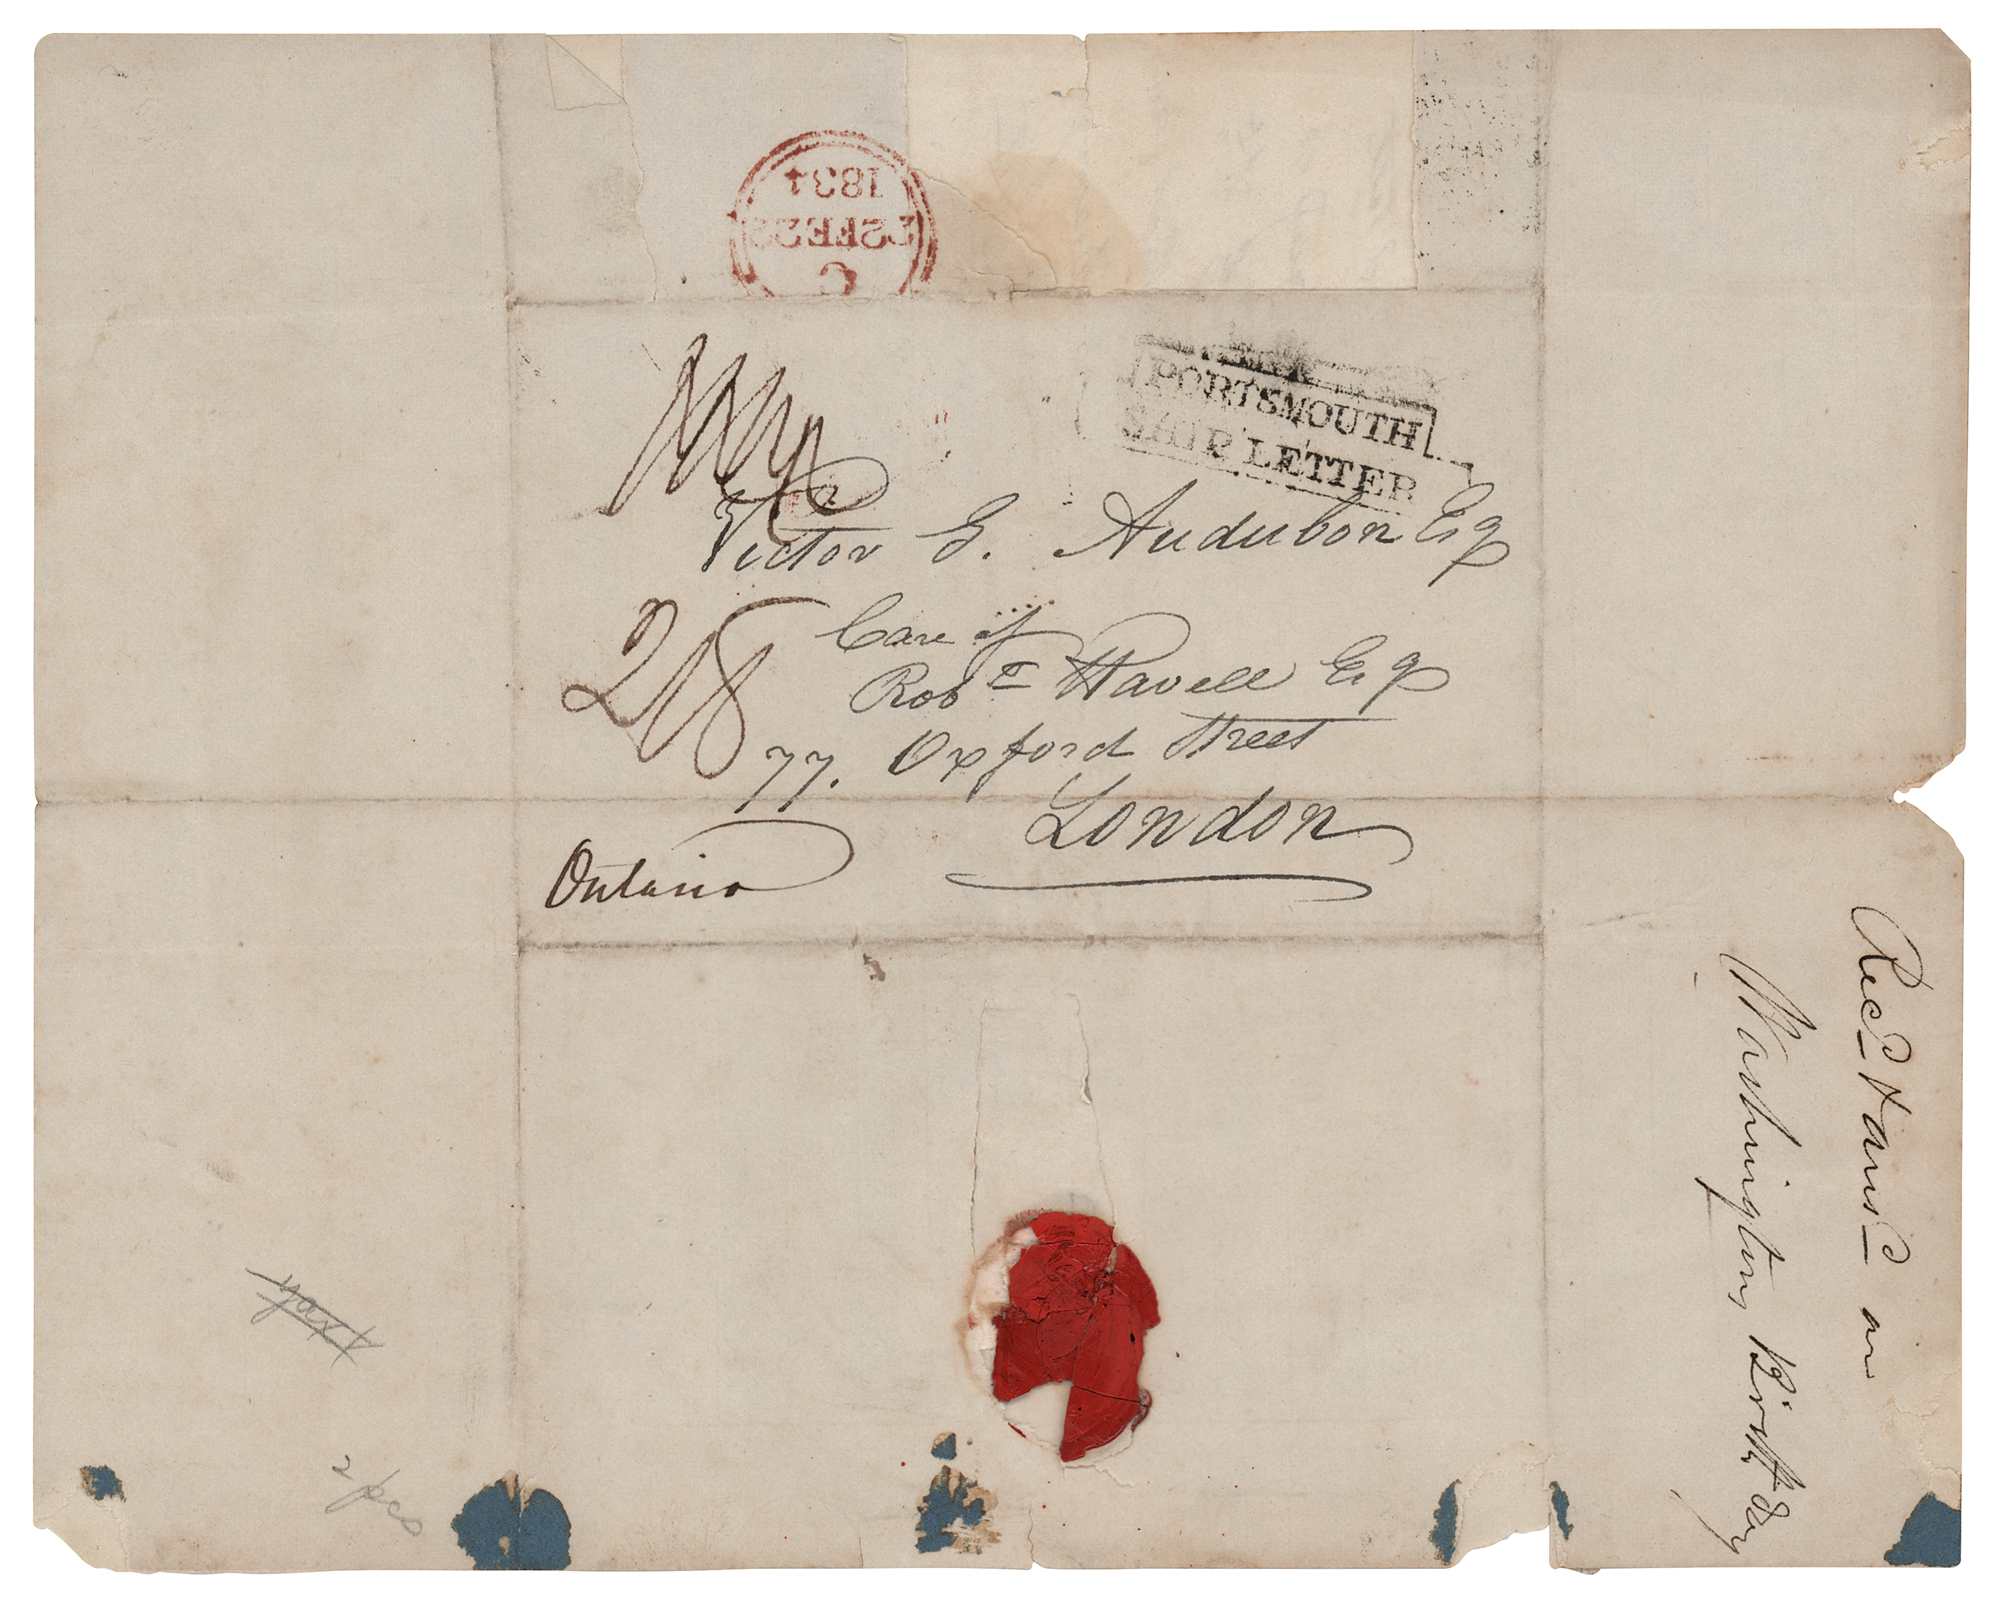 C
22FE22
1834
PORTSMOUTH
SHIP LETTER
Victor G. Audubon Esq
Care of
Robt Havell Esq
77. Oxford Street
London
Ontario
Recd & ansd on
Washington, Birth day
2 pcs